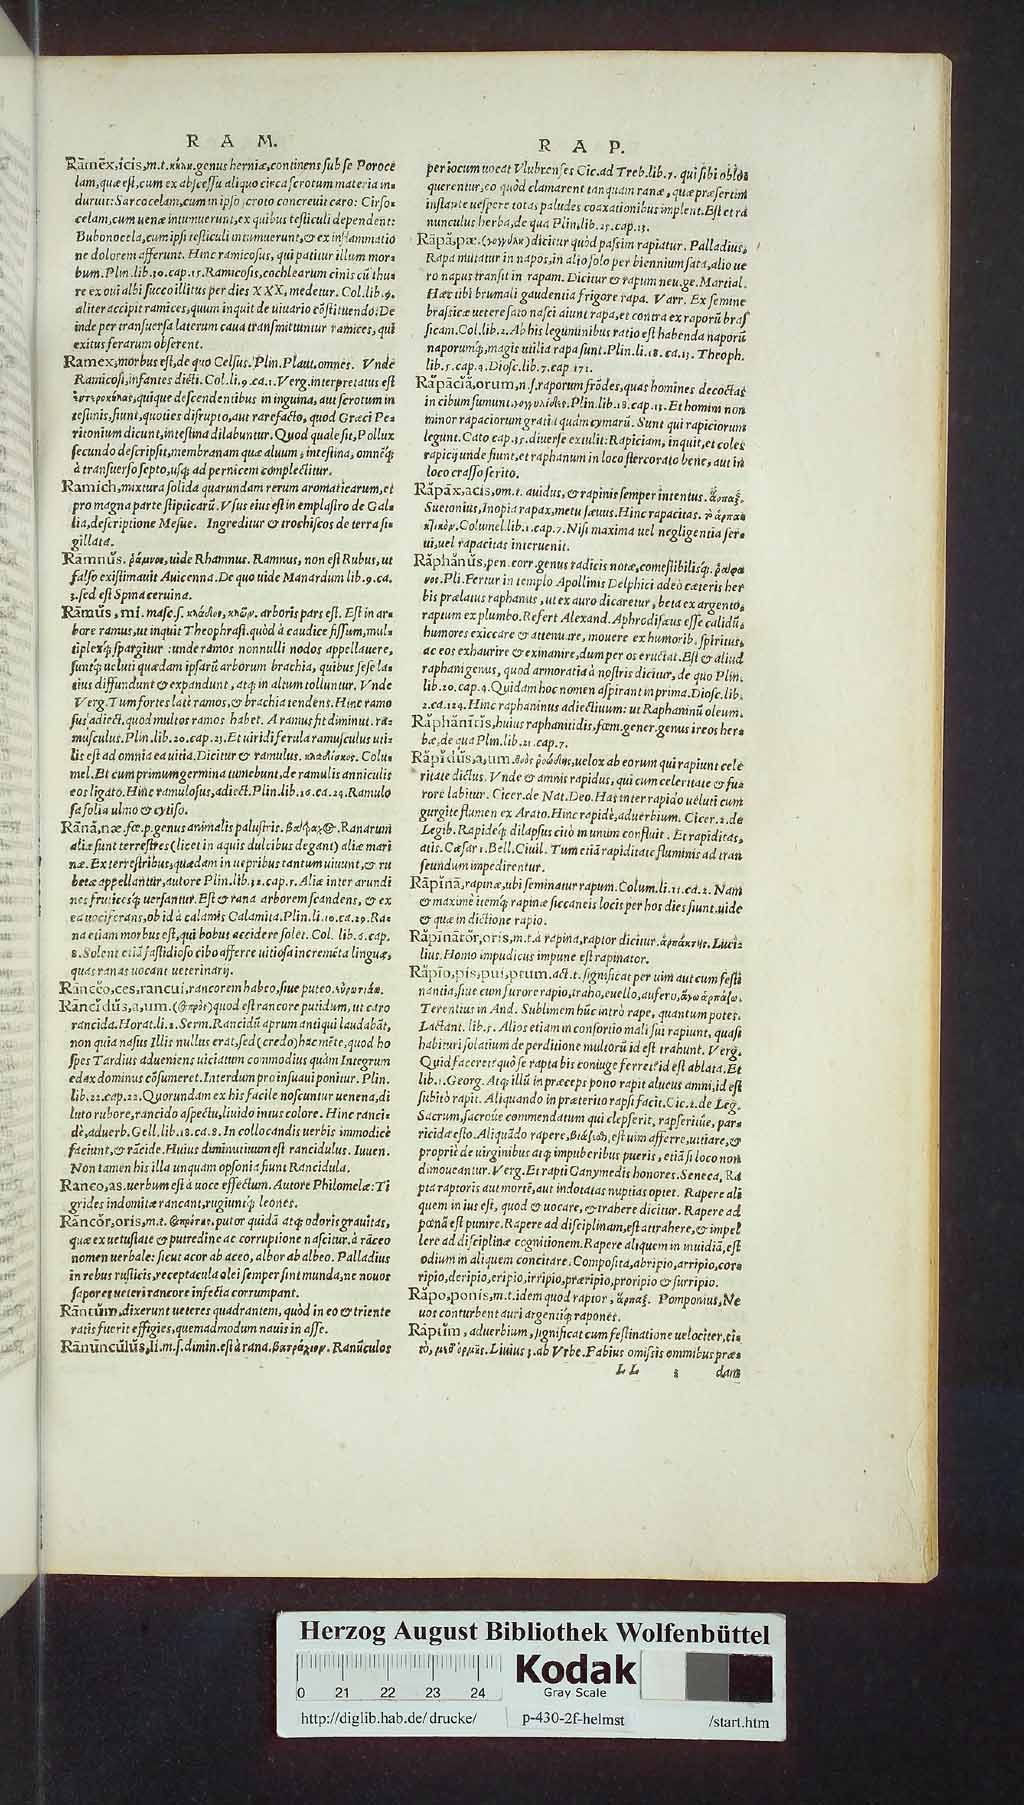 R A M.
Rāmēx, icis, m.t. κήλη. genus herniæ, continens sub se Poroce
lam, quæ est, cum ex abscessu aliquo circa scrotum materia in-
duruit: Sarcocelam, cum in ipso scroto concreuit caro: Cirso-
celam, cum uenæ intumuerunt, ex quibus testiculi dependent:
Bubonocela, cum ipsi testiculi intumuerunt, & ex inflammatio
ne dolorem afferunt. Hinc ramicosus, qui patitur illum mor-
bum. Plin. lib. 30. cap. 15. Ramicosis, cochlearum cinis cū thu-
re ex oui albi succo illitus per dies XXX, medetur. Col. lib. 9.
aliter accipit ramices, quum inquit de uiuario cōstituendo: De
inde per transuersa laterum caua transmittuntur ramices, qui
exitus ferarum obserent.
Ramex, morbus est, de quo Celsus. Plin. Plaut. omnes. Vnde
Ramicosi, infantes dicti. Col. li. 9. ca. 1. Verg. interpretatus est
quique descendentibus in inguina, aut scrotum in
testinis, fiunt, quoties disrupto, aut rarefacto, quod Græci Pe-
ritonium dicunt, intestina dilabuntur. Quod quale sit, Pollux
secundo descripsit, membranam quæ aluum, intestina, omneq;
à transuerso septo, usq; ad pernicem complectitur.
Ramich, mixtura solida quarundam rerum aromaticarum, et
pro magna parte stipticarū. Vsus eius est in emplastro de Gal-
lia, descriptione Mesue. Ingreditur & trochiscos de terra si-
gillata.
Rāmnŭs. ῥάμνος, uide Rhamnus. Ramnus, non est Rubus, ut
falso existimauit Auicenna. De quo uide Manardum lib. 9. ca.
3. sed est Spina ceruina.
Rāmŭs, mi. masc. s. κλάδος, κλών. arboris pars est. Est in ar-
bore ramus, ut inquit Theophrast. quòd à caudice fissum, mul-
tiplexq; spargitur: unde ramos nonnulli nodos appellauere,
suntq; ueluti quædam ipsarū arborum brachia, quibus sese la-
tius diffundunt & expandunt, atq; in altum tolluntur. Vnde
Verg. Tum fortes latè ramos, & brachia tendens. Hinc ramo
sus adiect. quod multos ramos habet. A ramus fit diminut. ra-
musculus. Plin. lib. 20. cap. 23. Et uiridi ferula ramusculus uti-
lis est ad omnia ea uitia. Dicitur & ramulus. κλαδίσκος. Colu-
mel. Et cum primum germina tumebunt, de ramulis anniculis
eos ligato. Hinc ramulosus, adiect. Plin. lib. 16. ca. 24. Ramulo
sa folia ulmo & cytiso.
Rānă, næ. fœ. p. genus animalis palustris. βάτραχος. Ranarum
aliæ sunt terrestres (licet in aquis dulcibus degant) aliæ mari
næ. Ex terrestribus, quædam in uepribus tantum uiuunt, & ru
betæ appellantur, autore Plin. lib. 32. cap. 5. Aliæ inter arundi
nes fruticesq; uersantur. Est & rana arborem scandens, & ex
ea uociferans, ob id à calamis Calamita. Plin. li. 10. ca. 29. Ra-
na etiam morbus est, qui bobus accidere solet. Col. lib. 6. cap.
8. Solent etiā fastidioso cibo afferre uitiosa incremēta linguæ,
quas ranas uocant ueterinarij.
Rāncĕo, ces, rancui, rancorem habeo, siue puteo. εὐρωτιάω.
Rāncĭdŭs, a, um. (σαπρός) quod est rancore putidum, ut caro
rancida. Horat. li. 2. Serm. Rancidū aprum antiqui laudabāt,
non quia nasus Illis nullus erat, sed (credo) hac mēte, quod ho
spes Tardius adueniens uiciatum commodius quàm Integrum
edax dominus cōsumeret. Interdum pro insuaui ponitur. Plin.
lib. 22. cap. 22. Quorundam ex his facile noscuntur uenena, di
luto rubore, rancido aspectu, liuido intus colore. Hinc ranci-
dè, aduerb. Gell. lib. 18. ca. 8. In collocandis uerbis immodicè
faciunt, & rācide. Huius diminutiuum est rancidulus. Iuuen.
Non tamen his illa unquam opsonia fiunt Rancidula.
Ranco, as. uerbum est à uoce effectum. Autore Philomelæ: Ti
grides indomitæ rancant, rugiuntq; leones.
Rāncŏr, oris, m.t. putor quidā atq; odoris grauitas,
quæ ex uetustate & putredine ac corruptione nascitur. à rāceo
nomen uerbale: sicut acor ab aceo, albor ab albeo. Palladius
in rebus rusticis, receptacula olei semper sint munda, ne nouos
sapores ueteri rancore infecta corrumpant.
Rāntūm, dixerunt ueteres quadrantem, quòd in eo & triente
ratis fuerit effigies, quemadmodum nauis in asse.
Rānūncŭlŭs, li. m. s. dimin. est à rana. βατράχιον. Ranūculos
R A P.
per iocum uocat Vlubrenses Cic. ad Treb. lib. 7. qui sibi oblos
querentur, eo quòd clamarent tanquam ranæ, quæ præsertim
instante uespere totas paludes coaxationibus implent. Est et ra
nunculus herba, de qua Plin. lib. 25. cap. 13.
Rāpă, pæ. (γογγύλη) dicitur quòd passim rapiatur. Palladius,
Rapa mutatur in napos, in alio solo per biennium sata, alio ue
ro napus transit in rapam. Dicitur & rapum neu. ge. Martial.
Hæc tibi brumali gaudentia frigore rapa. Varr. Ex semine
brassicæ uetere sato nasci aiunt rapa, et contra ex raporū bras
sicam. Col. lib. 2. Ab his leguminibus ratio est habenda naporū
naporumq;, magis utilia rapa sunt. Plin. li. 18. ca. 13. Theoph.
lib. 5. cap. 4. Diosc. lib. 7. cap. 171.
Răpăcĭă, orum, n.s. raporum frōdes, quas homines decoctas
in cibum sumunt. Plin. lib. 18. cap. 13. Et homini non
minor rapaciorum gratia quàm cymarū. Sunt qui rapiciorum
legunt. Cato cap. 35. diuerse extulit: Rapiciam, inquit, et coles
rapicij unde fiunt, et raphanum in loco stercorato bene, aut in
loco crasso serito.
Răpāx, acis, om. t. auidus, & rapinis semper intentus. ἅρπαξ.
Suetonius, Inopia rapax, metu sæuus. Hinc rapacitas. τὸ ἁρπακ
τικόν. Columel. lib. 1. cap. 7. Nisi maxima uel negligentia ser-
ui, uel rapacitas interuenit.
Răphănŭs, pen. corr. genus radicis notæ, comestibilisq;. ῥάφα
νος. Pli. Fertur in templo Apollinis Delphici adeò cæteris her
bis prælatus raphanus, ut ex auro dicaretur, beta ex argento,
raptum ex plumbo. Refert Alexand. Aphrodisæus esse calidū,
humores exiccare & attenuare, mouere ex humorib. spiritus,
ac eos exhaurire & exinanire, dum per os eructat. Est & aliud
raphani genus, quod armoratia à nostris dicitur, de quo Plin.
lib. 20. cap. 4. Quidam hoc nomen aspirant in prima. Diosc. lib.
2. ca. 124. Hinc raphaninus adiectiuum: ut Raphaninū oleum.
Răphănītĭs, huius raphanitidis, fœm. gener. genus ireos her-
bæ, de qua Plin. lib. 21. cap. 7.
Răpĭdŭs, a, um. uelox ab eorum qui rapiunt cele
ritate dictus. Vnde & amnis rapidus, qui cum celeritate & fu-
rore labitur. Cicer. de Nat. Deo. Has inter rapido uelutì cum
gurgite flumen ex Arato. Hinc rapidè, aduerbium. Cicer. 2. de
Legib. Rapideq; dilapsus citò in unum confluit. Et rapiditas,
atis. Cæsar 1. Bell. Ciuil. Tum etiā rapiditate fluminis ad tran
seundum impedirentur.
Rāpīnă, rapinæ, ubi seminatur rapum. Colum. li. 11. ca. 2. Nam
& maxime itemq; rapinæ siccaneis locis per hos dies fiunt. uide
& quæ in dictione rapio.
Răpīnātŏr, oris, m.t. à rapina, raptor dicitur. ἁρπάκτης. Luci-
lius. Homo impudicus impune est rapinator.
Răpĭo, pis, pui, ptum. act. t. significat per uim aut cum festi
nantia, siue cum furore rapio, traho, euello, aufero, ἄγω ἁρπάζω.
Terentius in And. Sublimem hūc intrò rape, quantum potes.
Lactant. lib. 5. Alios etiam in consortio mali sui rapiunt, quasi
habituri solatium de perditione multorū id est trahunt. Verg.
Quid faceret? quò se rapta bis coniuge ferret? id est ablata. Et
lib. 1. Georg. Atq; illū in præceps prono rapit alueus amni, id est
subitò rapit. Aliquando in præterito rapsi facit. Cic. 2. de Leg.
Sacrum, sacroúe commendatum qui clepserit, rapseritúe, par-
ricida esto. Aliquādo rapere, βιάζειν, est uim afferre, uitiare, &
propriè de uirginibus atq; impuberibus pueris, etiā si loco non
dimoueantur. Verg. Et rapti Ganymedis honores. Seneca, Ra
pta raptoris aut mortē, aut indotatas nuptias optet. Rapere ali
quem in ius est, quod & uocare, & trahere dicitur. Rapere ad
pœnā est punire. Rapere ad disciplinam, est attrahere, & impel
lere ad disciplinæ cognitionem. Rapere aliquem in inuidiā, est
odium in aliquem concitare. Composita, abripio, arripio, cor-
ripio, deripio, eripio, irripio, præripio, proripio & surripio.
Răpo, ponis, m.t. idem quod raptor, ἅρπαξ. Pomponius, Ne
uos conturbent auri argentiq; rapones.
Rāptīm, aduerbium, significat cum festinatione uelociter, ci-
tò, μεθ' ὁρμῆς. Liuius 3. ab Vrbe. Fabius omissis omnibus præ-
LL 3 dans
Herzog August Bibliothek Wolfenbüttel
0 21 22 23 24
Kodak
Gray Scale
http://diglib.hab.de/drucke/ p-430-2f-helmst /start.htm